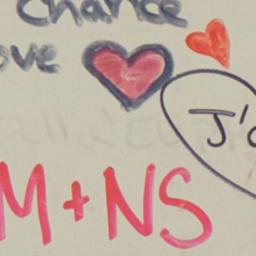 Chance
ove
J'
M+NS